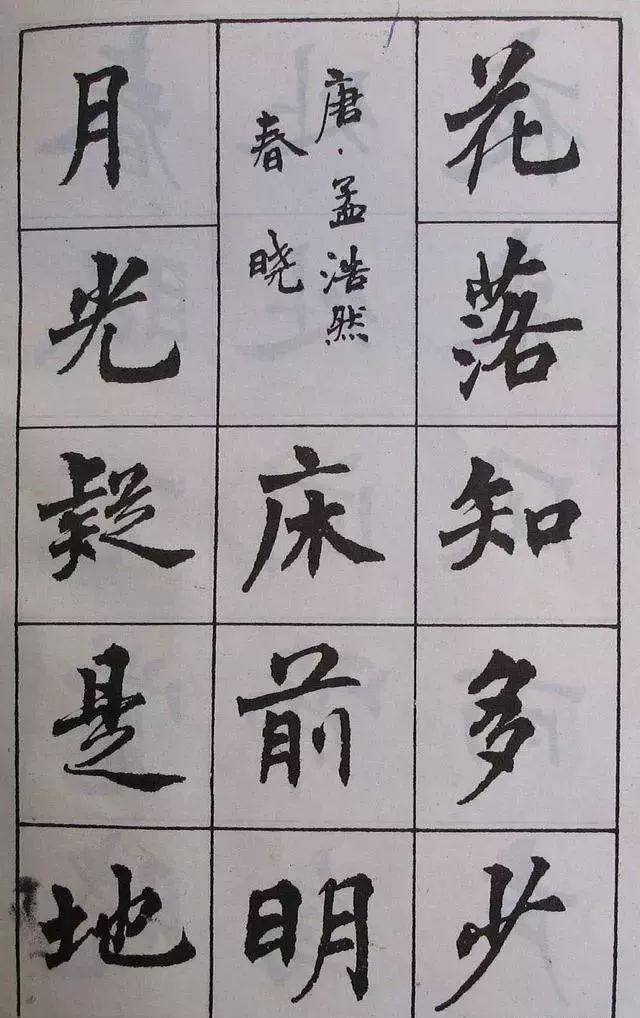 花落知多少
唐·孟浩然
春晓
床前明
月光疑是地